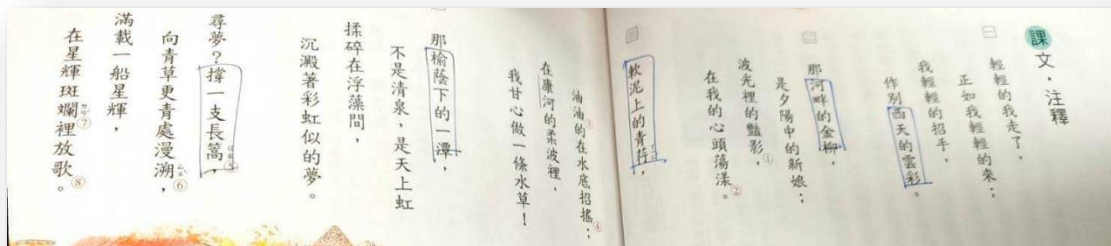 課文·注釋
一
輕輕的我走了，
正如我輕輕的來；
我輕輕的招手，
作別西天的雲彩。
二
那河畔的金柳，
是夕陽中的新娘；
波光裡的豔影，①
在我的心頭蕩漾。②
三
軟泥上的青荇，
油油的在水底招搖；④
在康河的柔波裡，
我甘心做一條水草！
那榆蔭下的一潭，
不是清泉，是天上虹
揉碎在浮藻間，
沉澱著彩虹似的夢。
尋夢？撐一支長篙，⑤
向青草更青處漫溯，⑥
滿載一船星輝，
在星輝斑斕⑦裡放歌。⑧